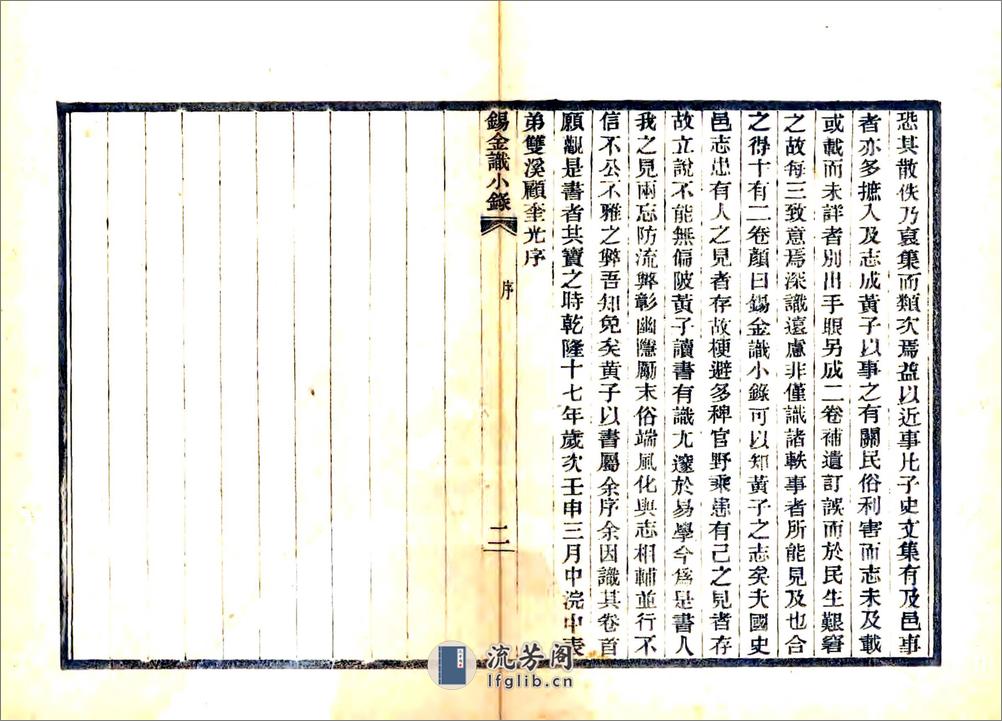 恐其散佚乃裒集而類次焉益以近事凡子史文集有及邑事
者亦多摭入及志成黃子以事之有關民俗利害而志未及載
或載而未詳者別出手眼另成二卷補遺訂誤而於民生艱窘
之故每三致意焉深識遠慮非僅識諸軼事者所能見及也合
之得十有二卷顏曰錫金識小錄可以知黃子之志矣夫國史
邑志患有人之見者存故梗避多稗官野乘患有己之見者存
故立說不能無偏陂黃子讀書有識尤邃於易學今為是書人
我之見兩忘防流弊彰幽隱勵末俗端風化與志相輔並行不
信不公不雅之弊吾知免矣黃子以書屬余序余因識其卷首
願觀是書者其寶之時乾隆十七年歲次壬申三月中浣中表
弟雙溪顧奎光序
錫金識小錄
序
二
流芳阁
lfglib.cn